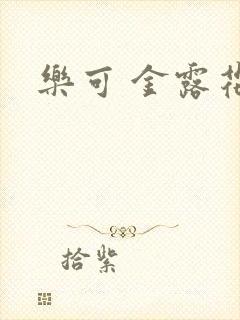 樂可 金露花
拾紫